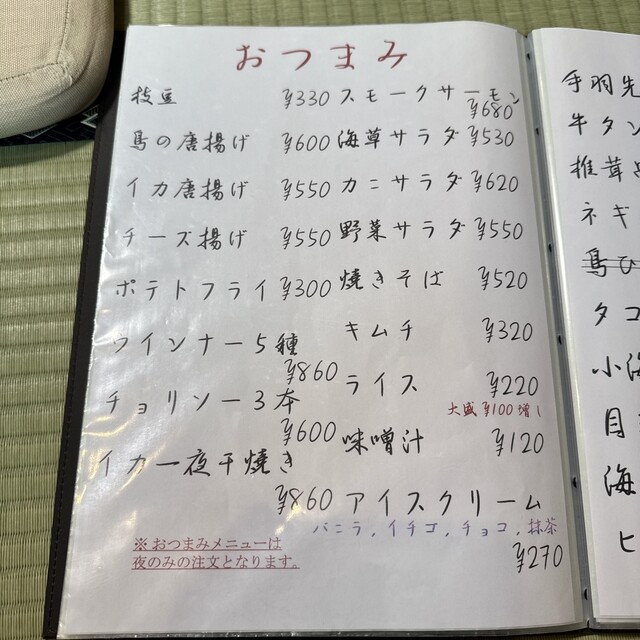 おつまみ
枝豆 ¥330
鳥の唐揚げ ¥600
イカ唐揚げ ¥550
チーズ揚げ ¥550
ポテトフライ ¥300
ウインナー5種
¥860
チョリソー3本
¥600
イカ一夜干焼き
¥860
※おつまみメニューは
夜のみの注文となります。
スモークサーモン
¥680
海草サラダ ¥530
カニサラダ ¥620
野菜サラダ ¥550
焼きそば ¥520
キムチ ¥320
ライス ¥220
大盛¥100増し
味噌汁 ¥120
アイスクリーム
バニラ,イチゴ,チョコ,抹茶
¥270
手羽先
牛タン
椎茸
ネギ
鳥ひ
タコ
小海
目
海
ヒ